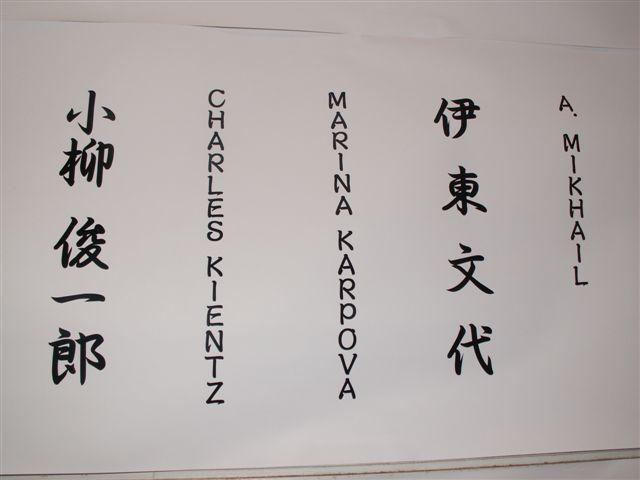 A. MIKHAIL
伊東文代
MARINA KARPOVA
CHARLES KIENTZ
小柳俊一郎